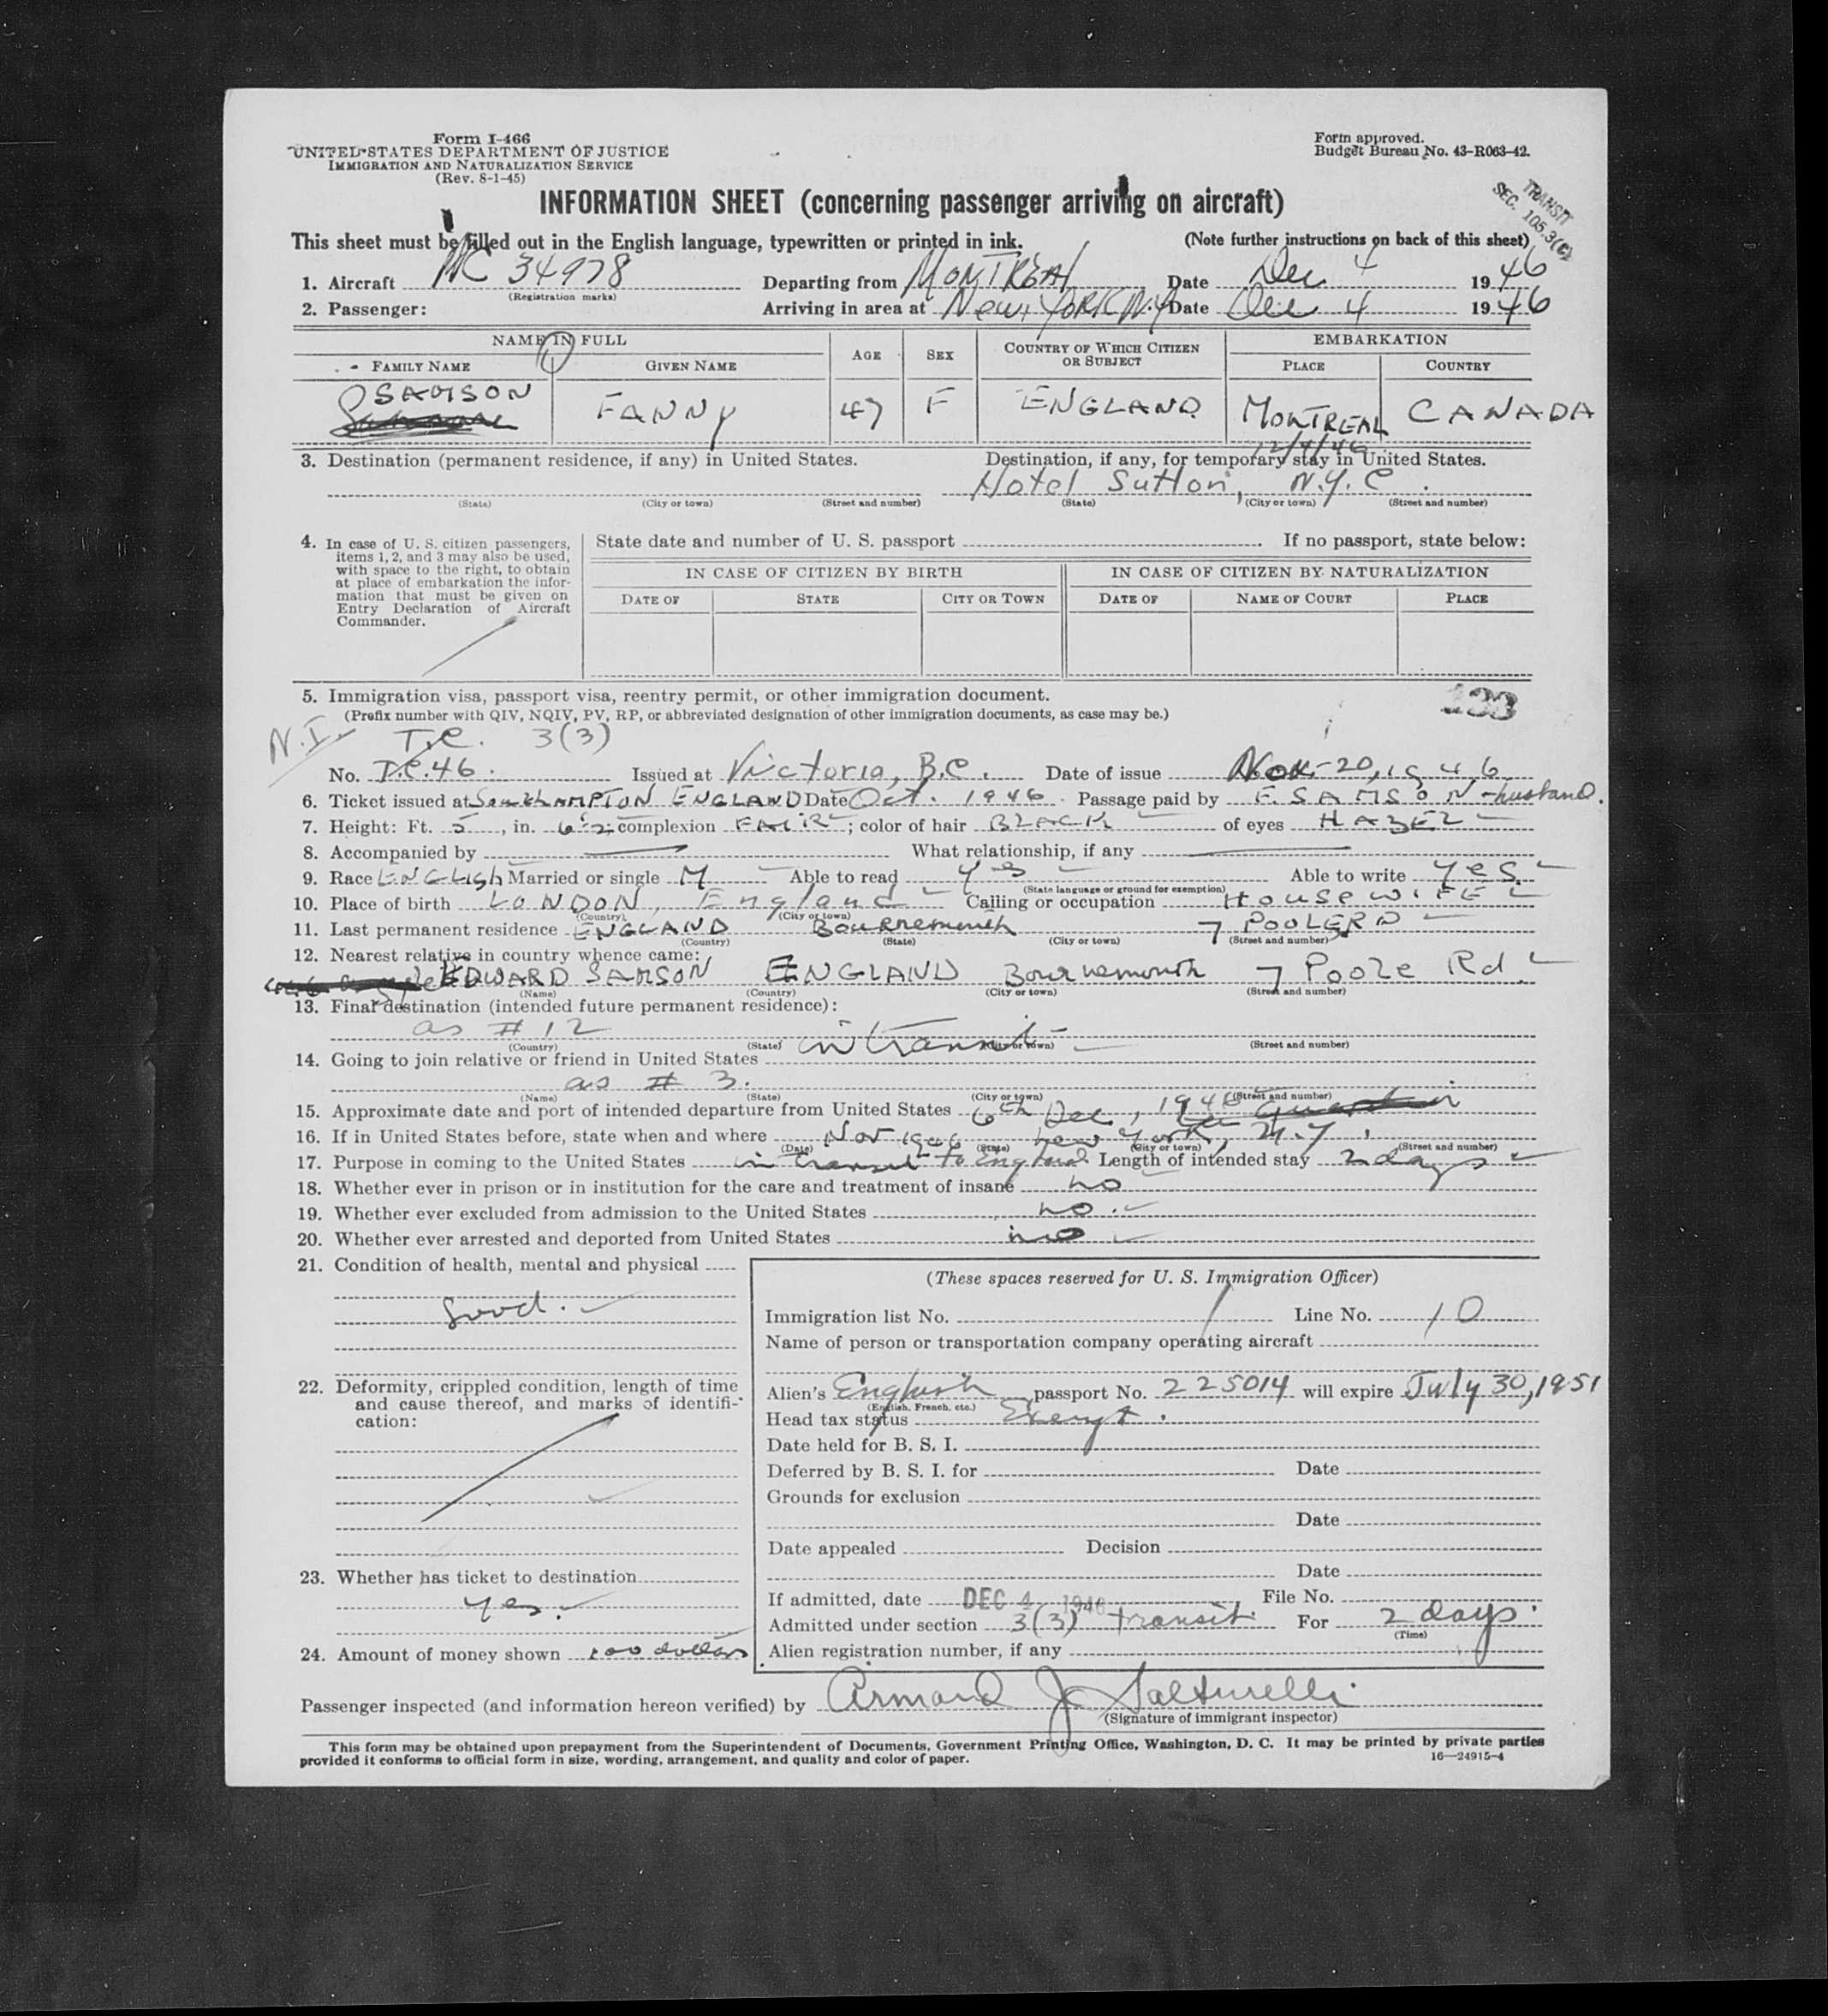 Form I-466
UNITED STATES DEPARTMENT OF JUSTICE
IMMIGRATION AND NATURALIZATION SERVICE
(Rev. 8-1-45)
Form approved.
Budget Bureau No. 43-R063-42.
INFORMATION SHEET (concerning passenger arriving on aircraft)
TRANSIT
SEC. 105.3(c)
This sheet must be filled out in the English language, typewritten or printed in ink. (Note further instructions on back of this sheet)
1. Aircraft NC 34978 Departing from MONTREAL Date Dec 4 1946
(Registration marks)
2. Passenger: Arriving in area at New York N.Y. Date Dec 4 1946
NAME IN FULL AGE SEX COUNTRY OF WHICH CITIZEN OR SUBJECT EMBARKATION
FAMILY NAME GIVEN NAME PLACE COUNTRY
SAMSON FANNY 47 F ENGLAND MONTREAL CANADA
12/4/46
3. Destination (permanent residence, if any) in United States. Destination, if any, for temporary stay in United States.
Hotel Sutton, N.Y.C.
(State) (City or town) (Street and number) (State) (City or town) (Street and number)
4. In case of U. S. citizen passengers, items 1, 2, and 3 may also be used, with space to the right, to obtain at place of embarkation the information that must be given on Entry Declaration of Aircraft Commander.
State date and number of U. S. passport If no passport, state below:
IN CASE OF CITIZEN BY BIRTH IN CASE OF CITIZEN BY NATURALIZATION
DATE OF STATE CITY OR TOWN DATE OF NAME OF COURT PLACE
5. Immigration visa, passport visa, reentry permit, or other immigration document.
(Prefix number with QIV, NQIV, PV, RP, or abbreviated designation of other immigration documents, as case may be.)
133
N.I. T.C. 3(3)
No. T.C.46. Issued at Victoria, B.C. Date of issue Nov.-20, 1946
6. Ticket issued at Southampton ENGLAND Date Oct. 1946 Passage paid by E. SAMSON - husband.
7. Height: Ft. 5, in. 6½; complexion FAIR; color of hair BLACK of eyes HAZEL
8. Accompanied by What relationship, if any
9. Race ENGLISH Married or single M Able to read yes Able to write yes
(State language or ground for exemption)
10. Place of birth LONDON, England Calling or occupation HOUSEWIFE
(Country) (City or town)
11. Last permanent residence ENGLAND Bournemouth 7 POOLE RD
(Country) (State) (City or town) (Street and number)
12. Nearest relative in country whence came:
EDWARD SAMSON ENGLAND Bournemouth 7 Poole Rd
(Name) (Country) (City or town) (Street and number)
13. Final destination (intended future permanent residence):
as # 12 in transit
(Country) (State) (City or town) (Street and number)
14. Going to join relative or friend in United States
as # 3.
(Name) (State) (City or town) (Street and number)
15. Approximate date and port of intended departure from United States 6th Dec, 1946
16. If in United States before, state when and where Nov 1946 New York, N.Y.
(Date) (State) (City or town) (Street and number)
17. Purpose in coming to the United States in transit to England Length of intended stay 2 days
18. Whether ever in prison or in institution for the care and treatment of insane no
19. Whether ever excluded from admission to the United States no.
20. Whether ever arrested and deported from United States no
21. Condition of health, mental and physical
Good.
22. Deformity, crippled condition, length of time and cause thereof, and marks of identification:
23. Whether has ticket to destination
yes.
24. Amount of money shown 100 dollars
(These spaces reserved for U. S. Immigration Officer)
Immigration list No. 1 Line No. 10
Name of person or transportation company operating aircraft
Alien's English passport No. 225014 will expire July 30, 1951
(English, French, etc.)
Head tax status Exempt.
Date held for B. S. I.
Deferred by B. S. I. for Date
Grounds for exclusion
Date
Date appealed Decision
Date
If admitted, date DEC 4 1946 File No.
Admitted under section 3(3) transit For 2 days.
(Time)
Alien registration number, if any
Passenger inspected (and information hereon verified) by Armand J. Salturelli
(Signature of immigrant inspector)
This form may be obtained upon prepayment from the Superintendent of Documents, Government Printing Office, Washington, D. C. It may be printed by private parties
provided it conforms to official form in size, wording, arrangement, and quality and color of paper. 16—24915-4